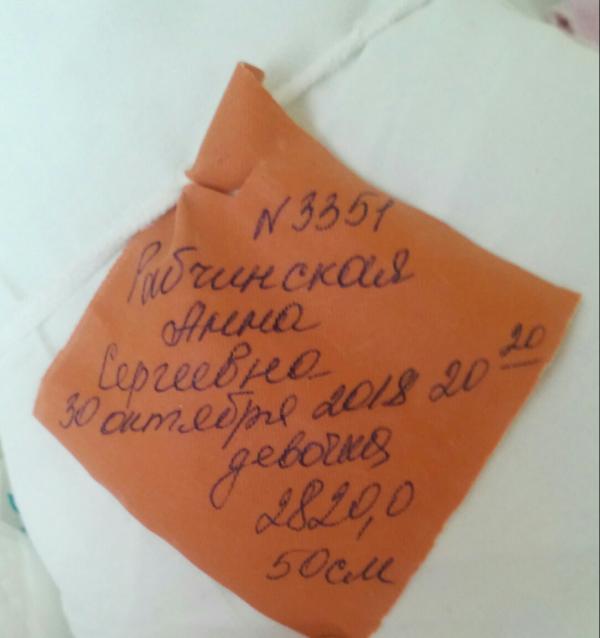 N 3351
Рабчинская
Анна
Сергеевна
30 октября 2018 20 20
девочка
2820,0
50см